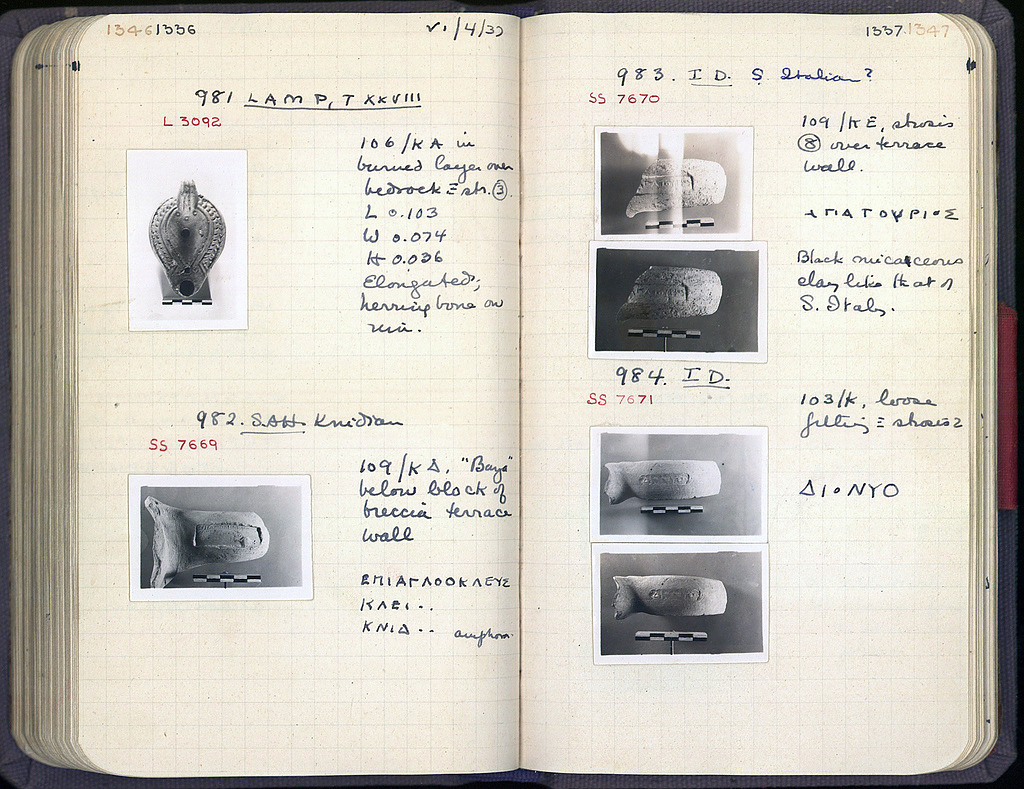 1346 1336
VI/4/37
981 LAMP, T XXVIII
L 3092
106/KA in
burned layer over
bedrock = str. ③.
L 0.103
W 0.074
H 0.036
Elongated;
herring bone on
rim.
982. S.A.H. Knidian
SS 7669
109/KΔ, "Bays"
below block of
breccia terrace
wall
ΕΠΙΑΓΛΟΟΚΛΕΥΣ
ΚΛΕΙ..
ΚΝΙΔ.. amphora.
1337 1347
983. ID. S. Italian?
SS 7670
109/KE, strosis
⑧ over terrace
wall.
ΑΠΑΤΟΥΡΙΟΣ
Black micaceous
clay like that of
S. Italy.
984. ID.
SS 7671
103/K, loose
filling = strosis 2
ΔΙΟΝΥΟ